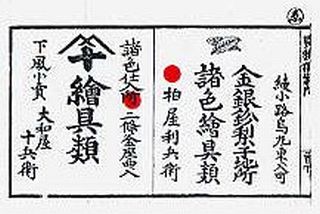 綾小路烏丸東入町
金銀鈖梨子地所
諸色繪具類
柏屋利兵衛
諸色仕入所 二條金座西入
十 繪具類
下風小賣 大和屋 十兵衛